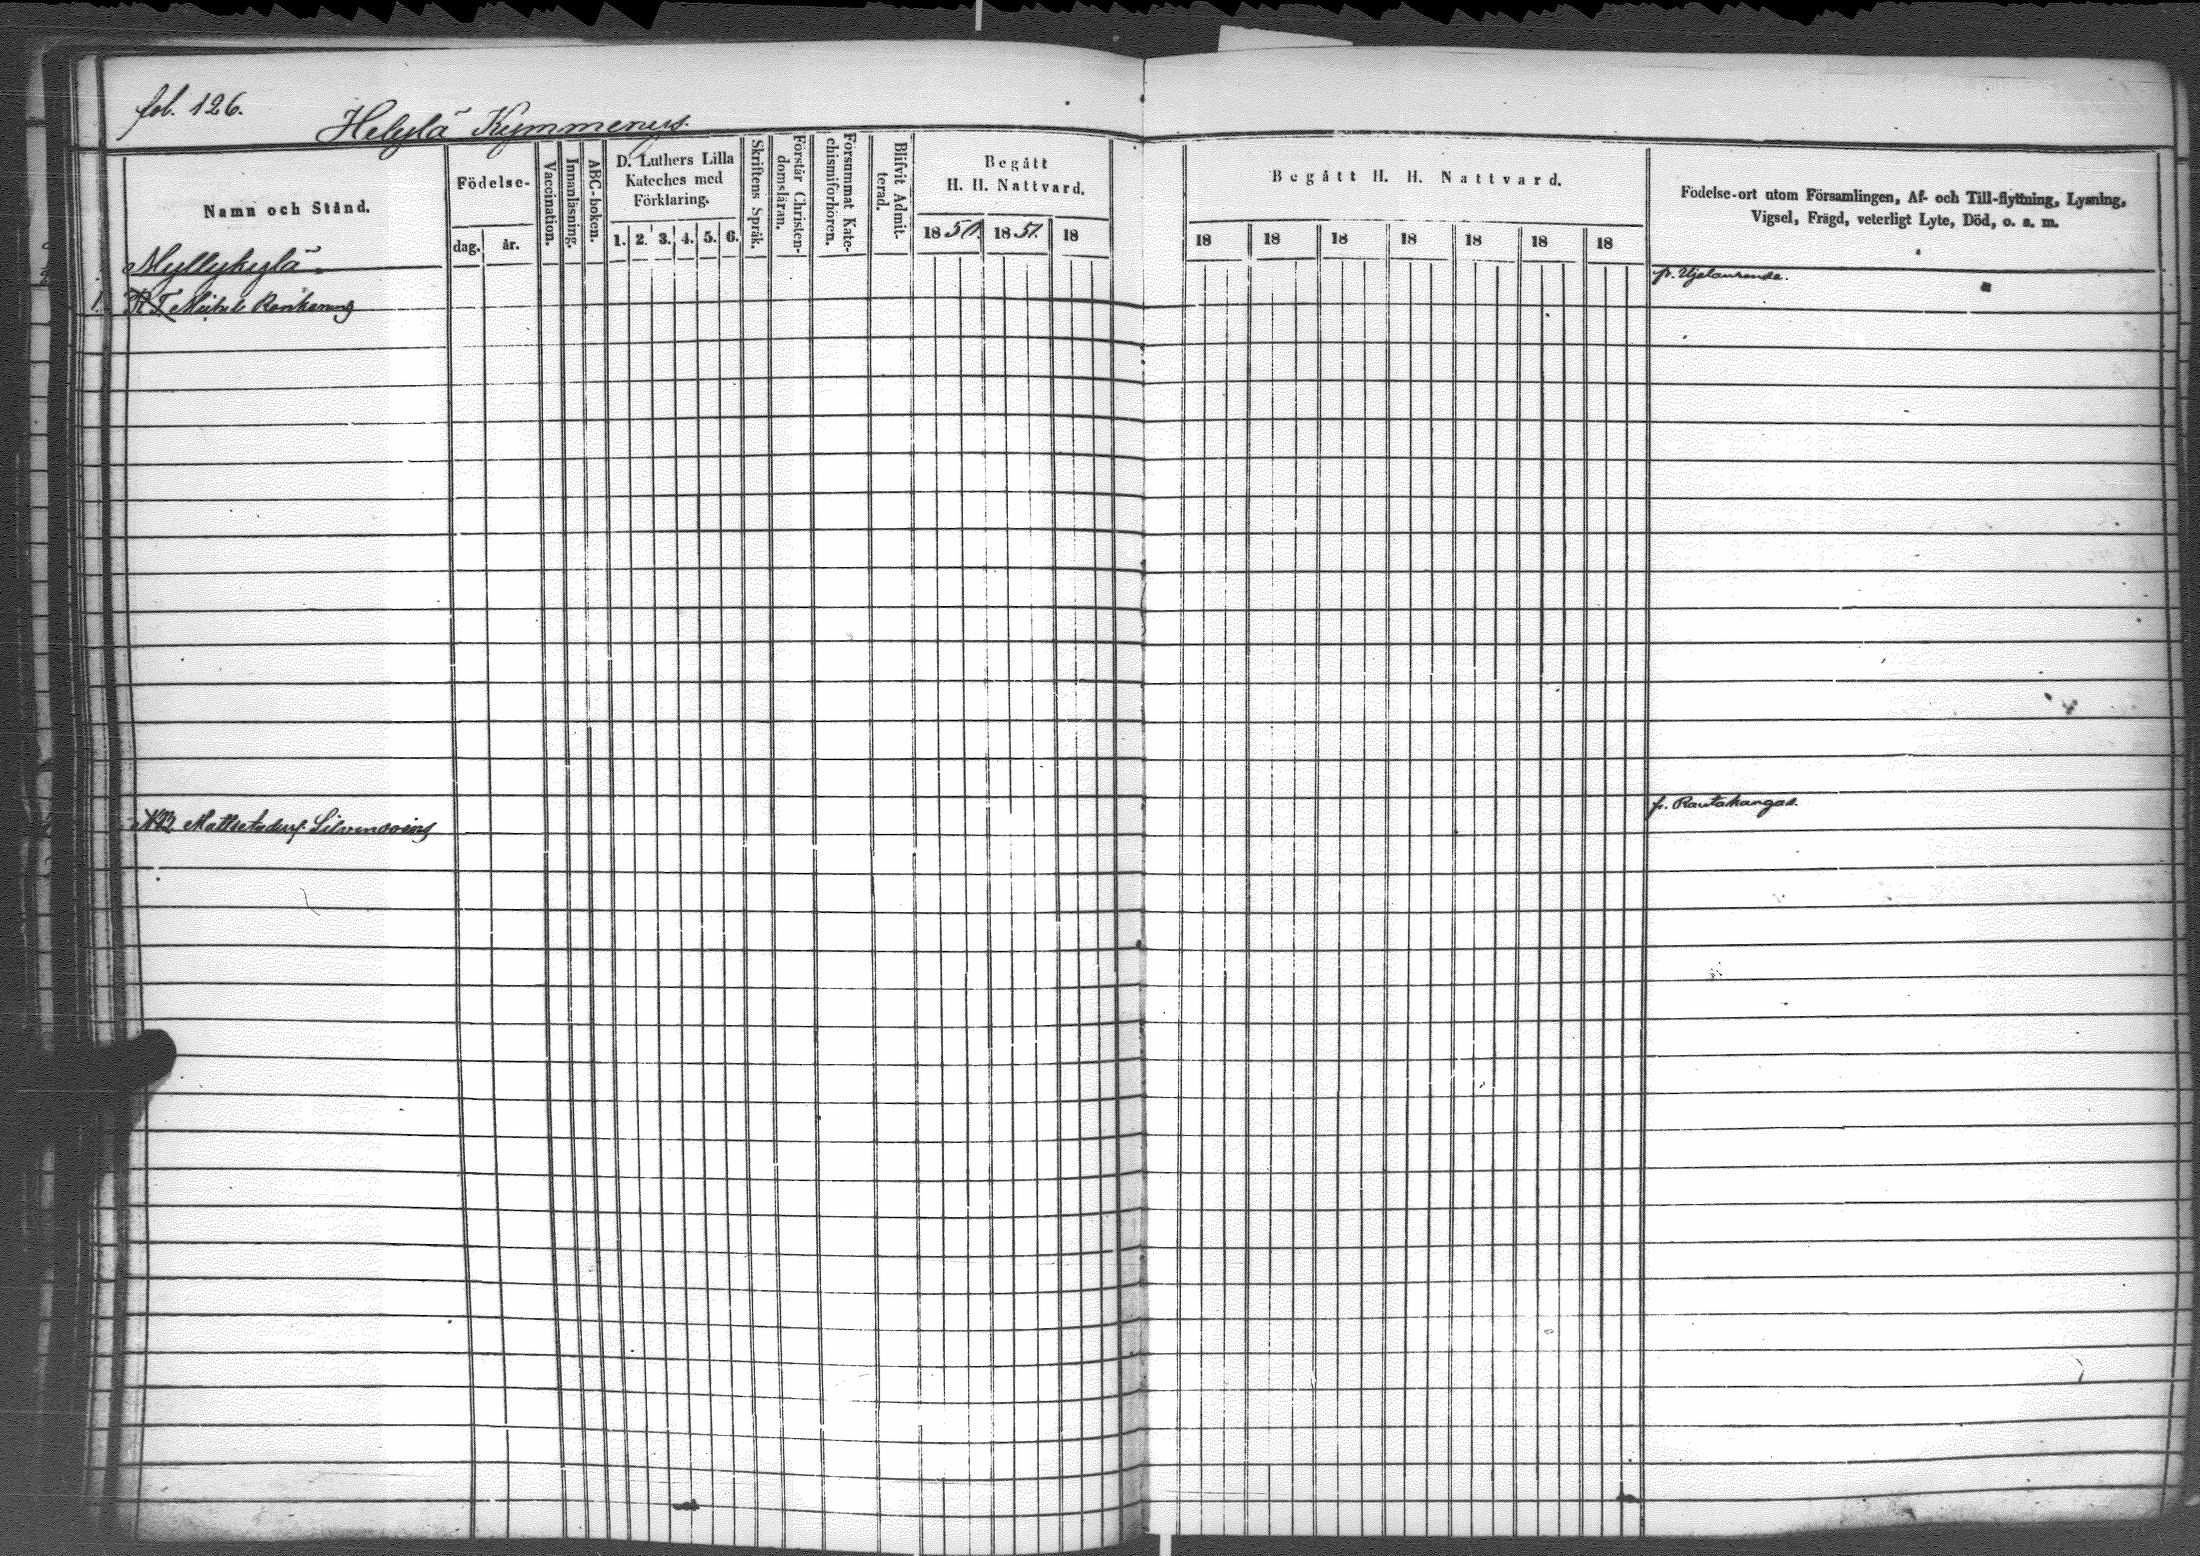 fol. 126.
Helylä Kymmenys.
Namn och Stånd.
Födelse-
dag. år.
Vaccination.
Innanläsning.
ABC-boken.
D. Luthers Lilla
Kateches med
Förklaring.
1. 2. 3. 4. 5. 6.
Skriftens Språk.
Förstår Christen-
domsläran.
Försummat Kate-
chismiförhören.
Blifvit Admit-
terad.
Begått
H. H. Nattvard.
18 50. 18 51. 18
Begått H. H. Nattvard.
18 18 18 18 18 18 18
Födelse-ort utom Församlingen, Af- och Till-flyttning, Lysning,
Vigsel, Frägd, veterligt Lyte, Död, o. s. m.
Myllykylä.
fr.
1.
fr. Rautakangas.